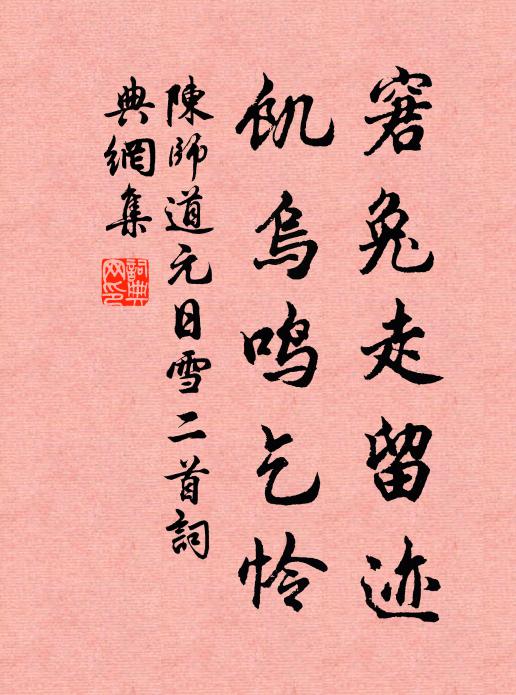 窘兔走留迹
飢烏鳴乞怜
陳師道元日雪二首詞
典網集
詞典
网印